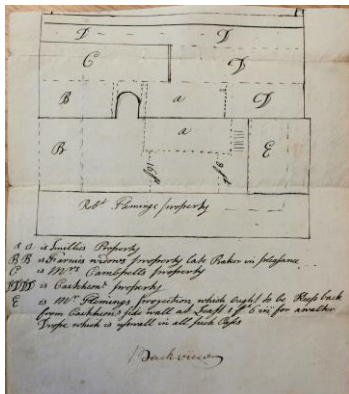 D D
C D
B a D
a
B E
Robt Flemings property
a a is Smillies Property
B B is Fairnies widows property late Baker in
C is Mrs Campbells property
DDD is property
E is Mr Flemings projection which ought to be Keept back
from side wall at Least 1 ft 6 in for a water
Drope which is uswall in all such Cases
Back view